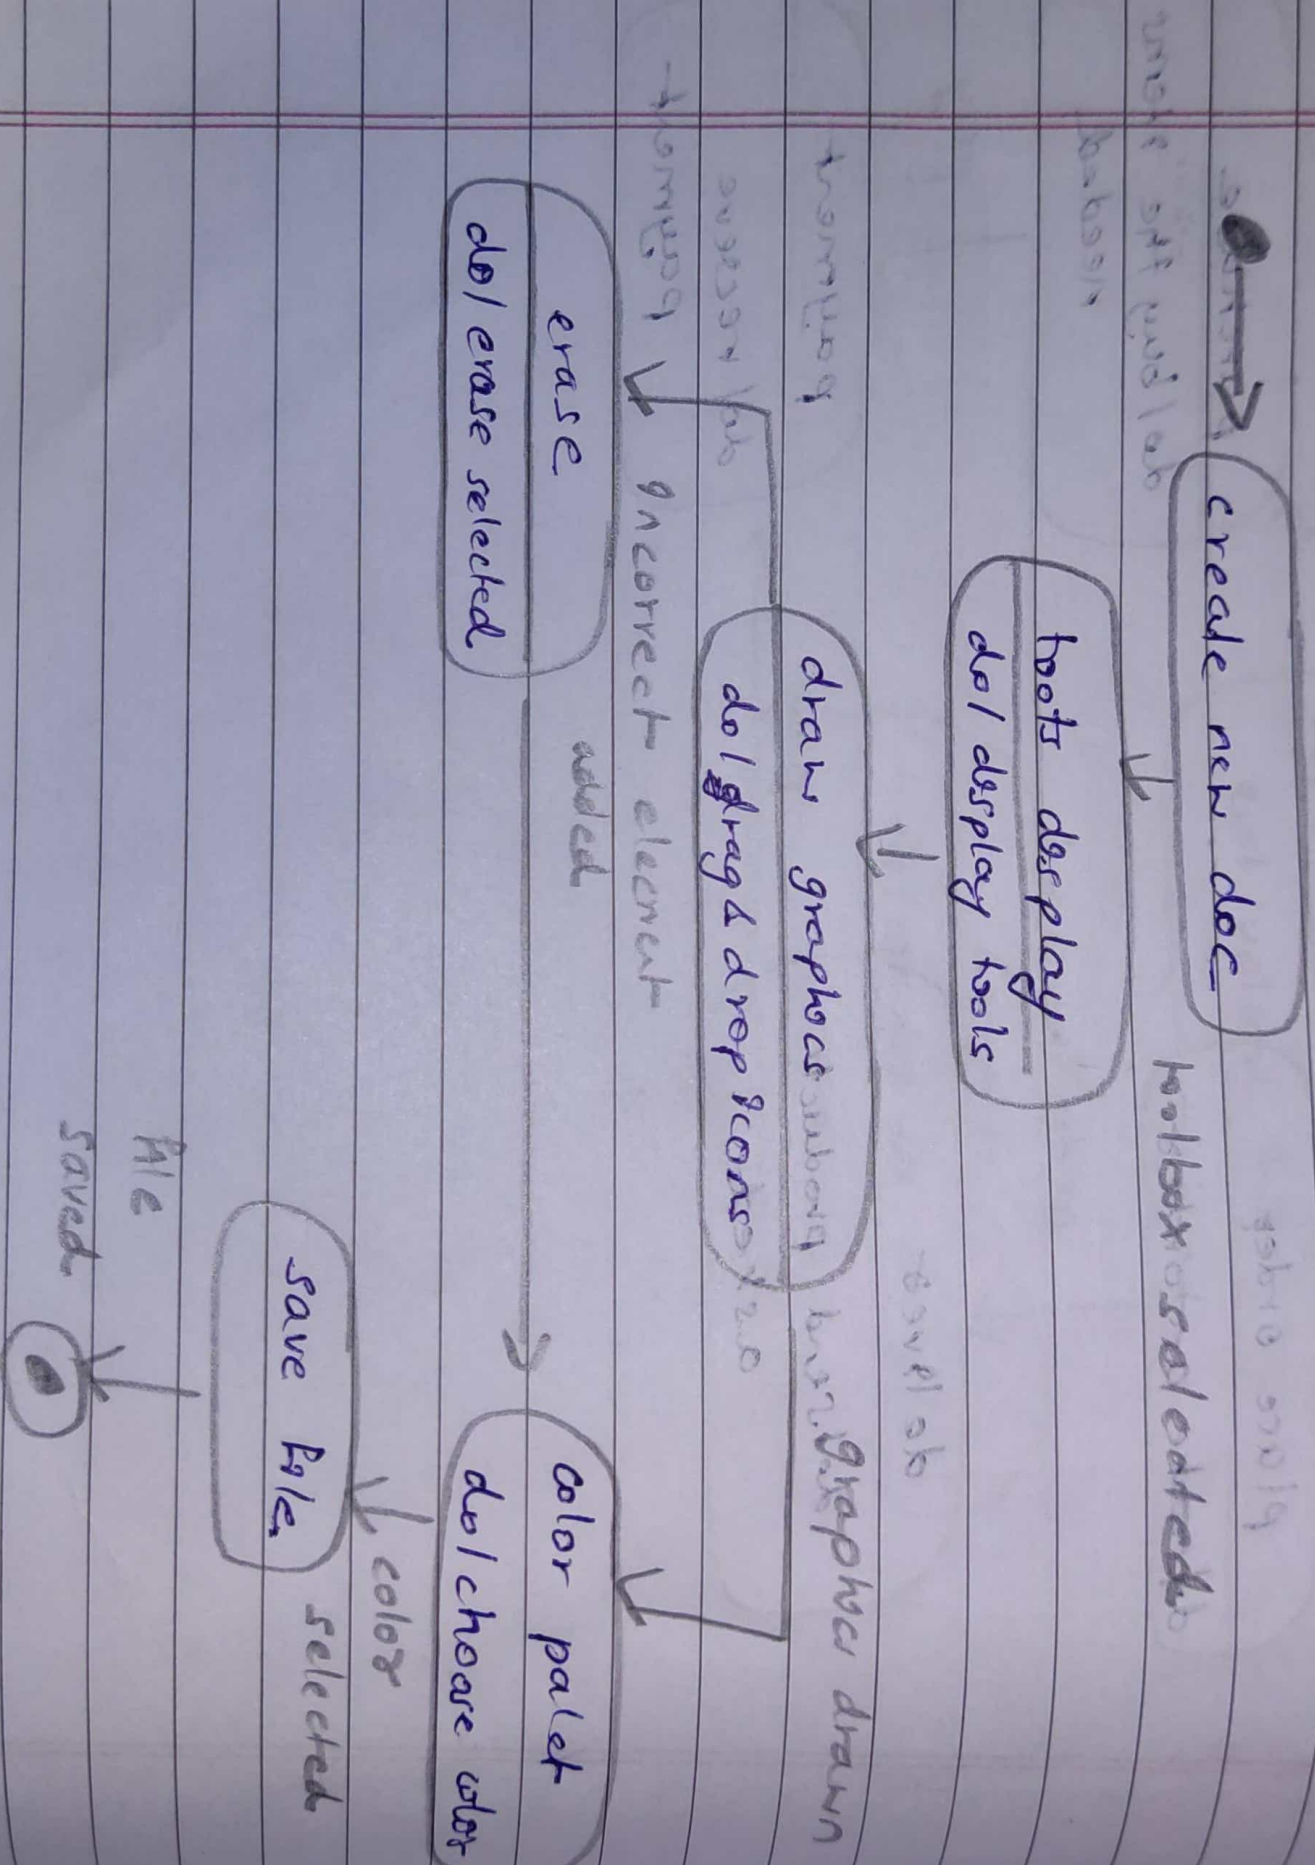 create new doc
toolbox selected
tools display
do/ display tools
draw graphics
do/ drag & drop icons
graphics drawn
incorrect element
added
erase
do/ erase selected
color palet
do/ choose color
color
selected
save file
file
saved